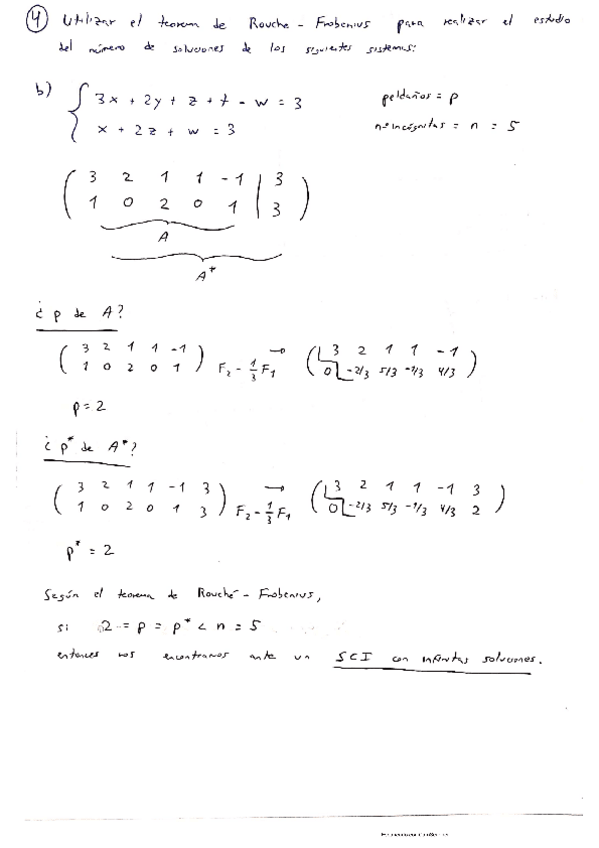 4 Utilizar el teorema de Rouche - Frobenius para realizar el estudio
del número de soluciones de los siguientes sistemas:
b) { 3x + 2y + z + t - w = 3 peldaños = p
x + 2z + w = 3 nº incógnitas = n = 5
( 3 2 1 1 -1 | 3 )
1 0 2 0 1 | 3
A
A*
¿ p de A?
( 3 2 1 1 -1 ) → ( 3 2 1 1 -1 )
1 0 2 0 1 F2 - 1/3 F1 0 -2/3 5/3 -1/3 4/3
p = 2
¿ p* de A*?
( 3 2 1 1 -1 3 ) → ( 3 2 1 1 -1 3 )
1 0 2 0 1 3 F2 - 1/3 F1 0 -2/3 5/3 -1/3 4/3 2
p* = 2
Según el teorema de Rouché - Frobenius,
si 2 = p = p* < n = 5
entonces nos encontramos ante un SCI con infinitas soluciones.